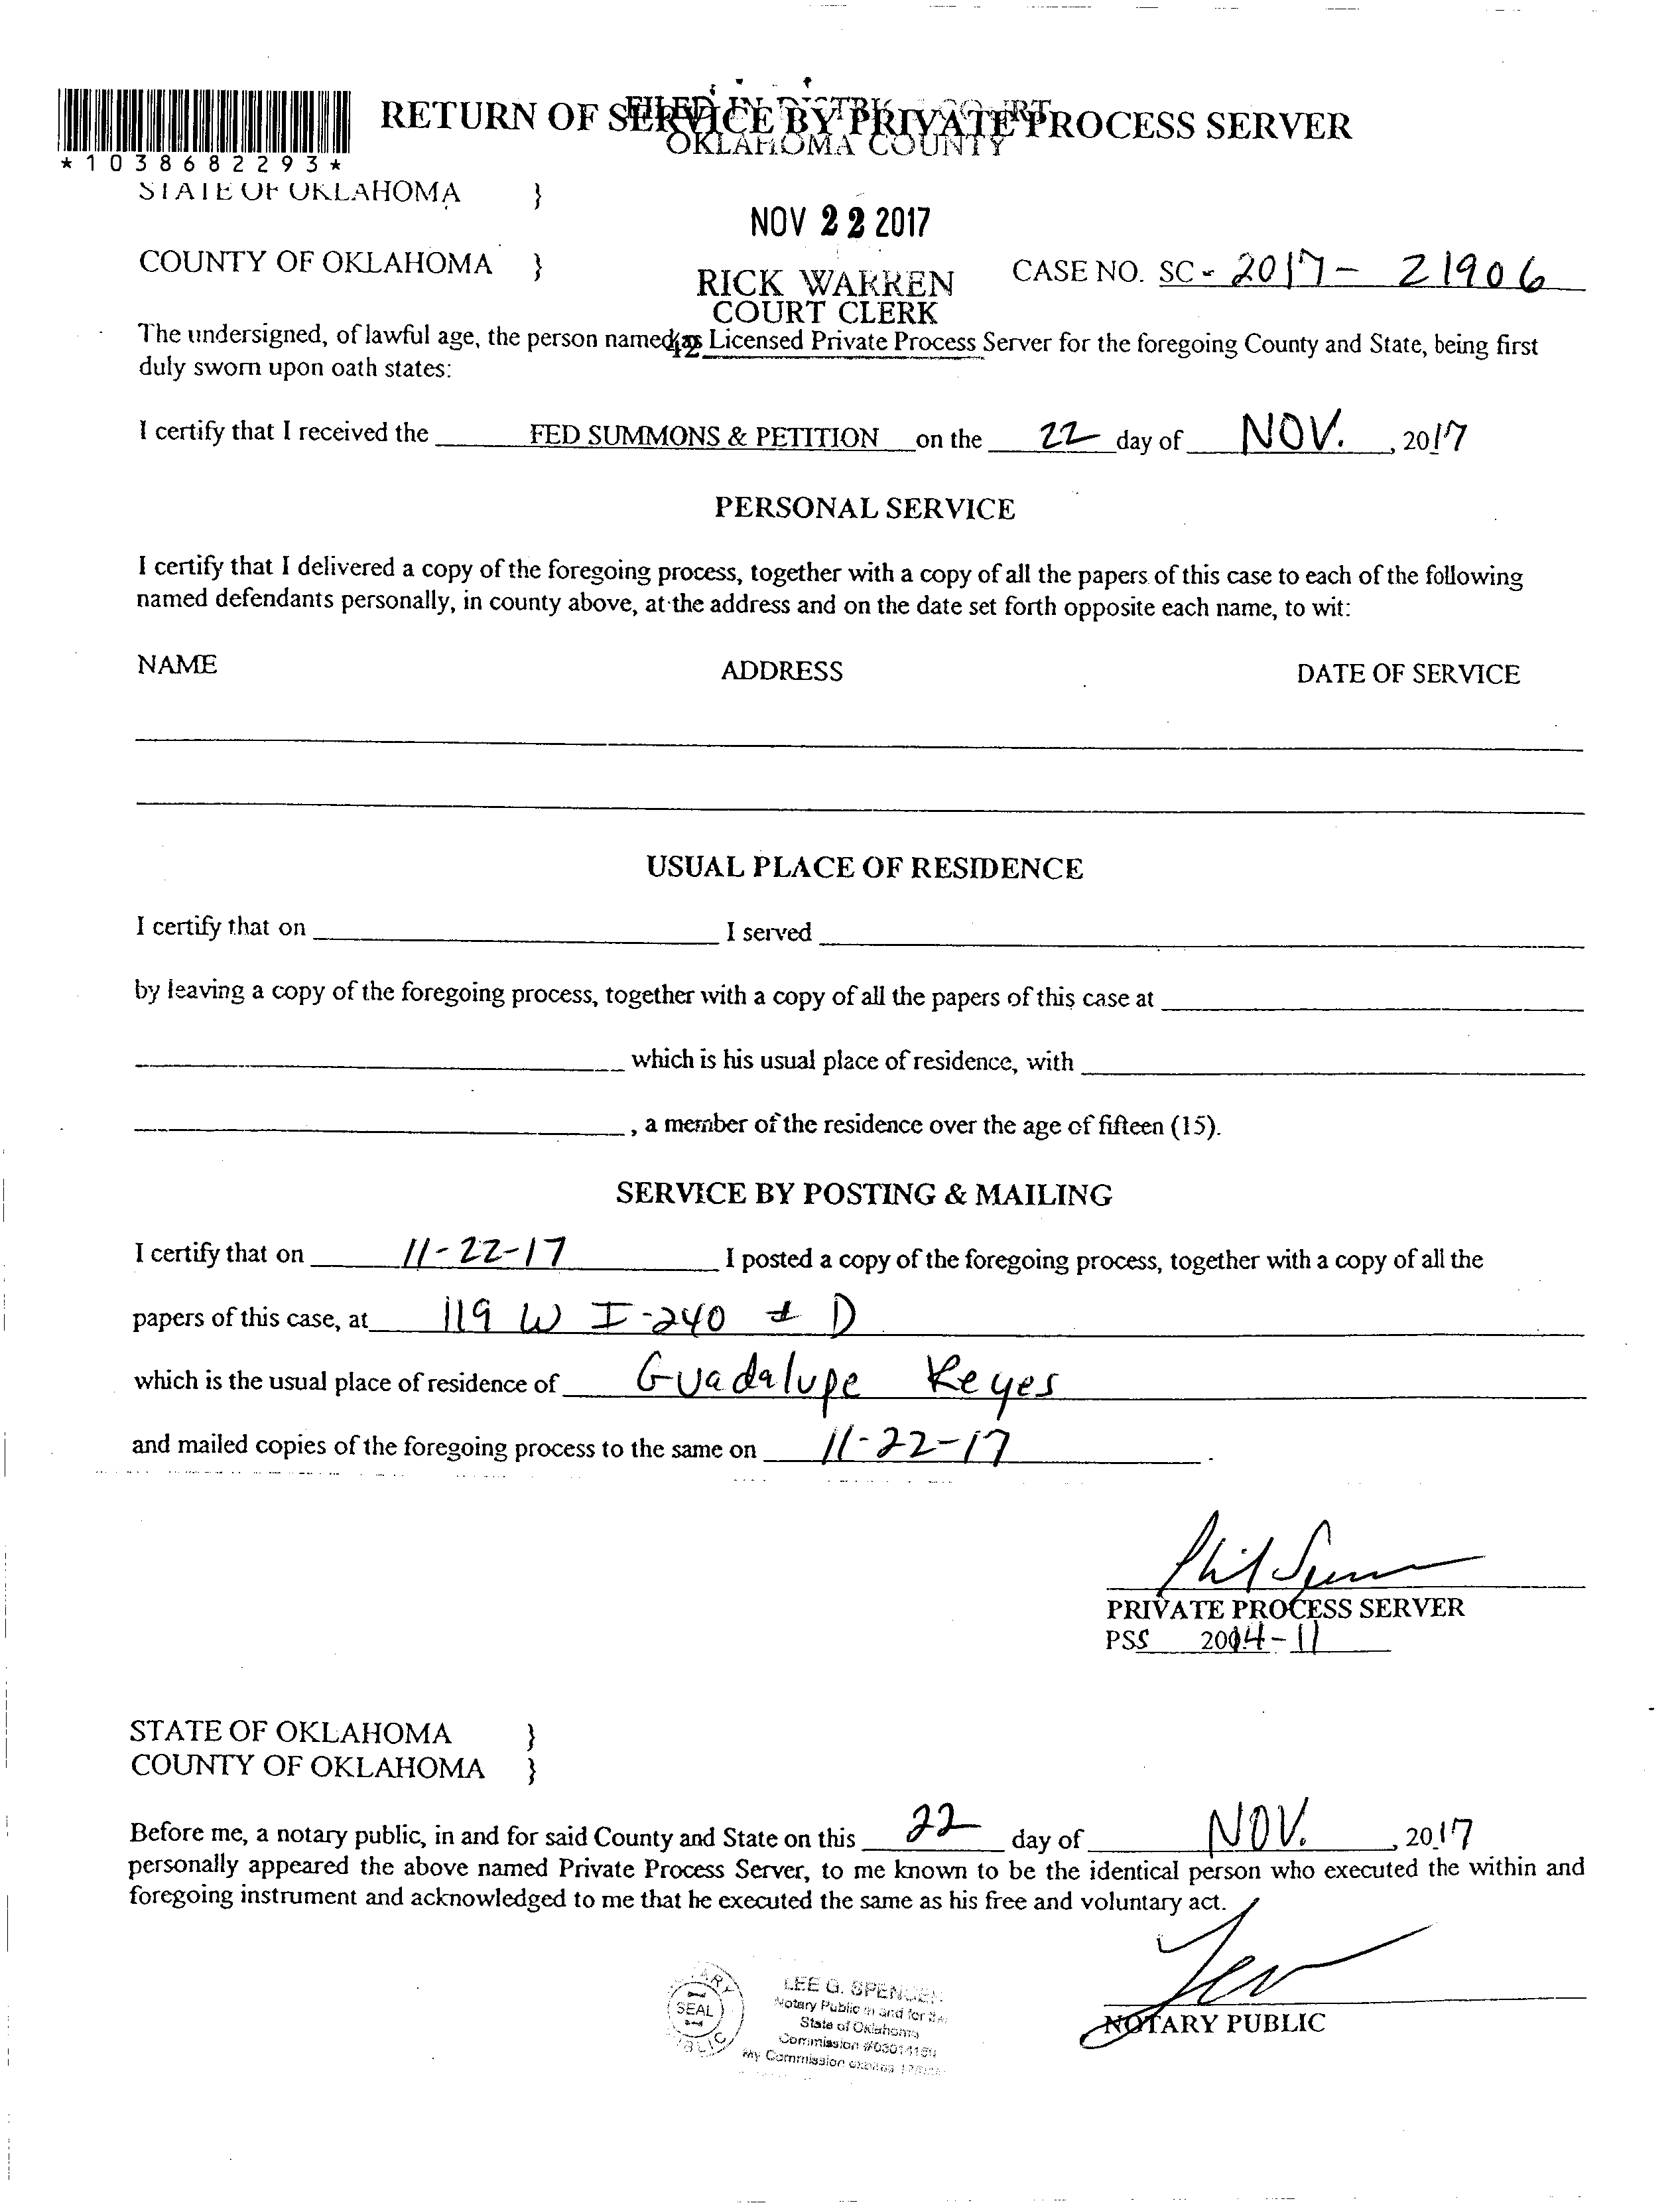 RETURN OF SERVICE BY PRIVATE PROCESS SERVER
FILED IN DISTRICT COURT
OKLAHOMA COUNTY
*1038682293*
STATE OF OKLAHOMA }
NOV 22 2017
COUNTY OF OKLAHOMA }
RICK WARREN
COURT CLERK
CASE NO. SC - 2017 - 21906
42
The undersigned, of lawful age, the person named as Licensed Private Process Server for the foregoing County and State, being first
duly sworn upon oath states:
I certify that I received the FED SUMMONS & PETITION on the 22 day of NOV. , 2017
PERSONAL SERVICE
I certify that I delivered a copy of the foregoing process, together with a copy of all the papers of this case to each of the following
named defendants personally, in county above, at the address and on the date set forth opposite each name, to wit:
NAME ADDRESS DATE OF SERVICE
USUAL PLACE OF RESIDENCE
I certify that on I served
by leaving a copy of the foregoing process, together with a copy of all the papers of this case at
which is his usual place of residence, with
, a member of the residence over the age of fifteen (15).
SERVICE BY POSTING & MAILING
I certify that on 11-22-17 I posted a copy of the foregoing process, together with a copy of all the
papers of this case, at 119 W I-240 # D
which is the usual place of residence of Guadalupe Reyes
and mailed copies of the foregoing process to the same on 11-22-17 .
PRIVATE PROCESS SERVER
PSS 2014-11
STATE OF OKLAHOMA }
COUNTY OF OKLAHOMA }
Before me, a notary public, in and for said County and State on this 22 day of NOV. , 2017
personally appeared the above named Private Process Server, to me known to be the identical person who executed the within and
foregoing instrument and acknowledged to me that he executed the same as his free and voluntary act.
NOTARY PUBLIC
SEAL
LEE G. SPENCER
Notary Public in and for the
State of Oklahoma
Commission
My Commission expires